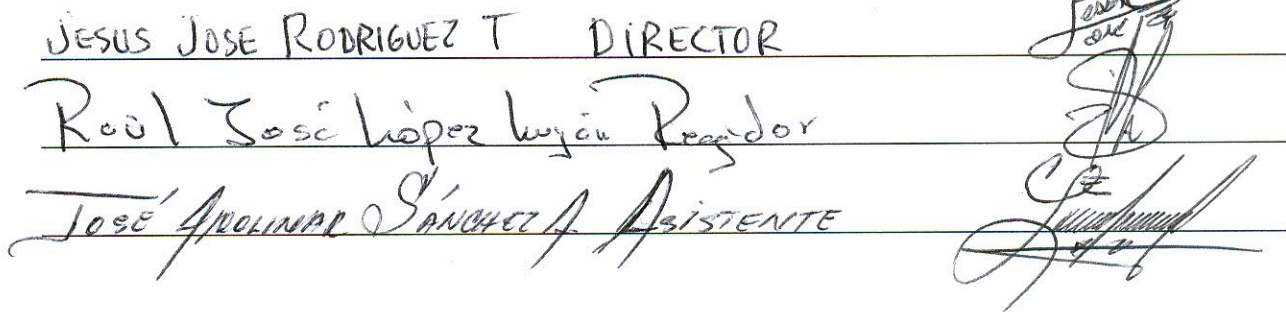 JESUS JOSE RODRIGUEZ T DIRECTOR
Raúl José López Luján Regidor
JOSÉ APOLINAR SÁNCHEZ A ASISTENTE